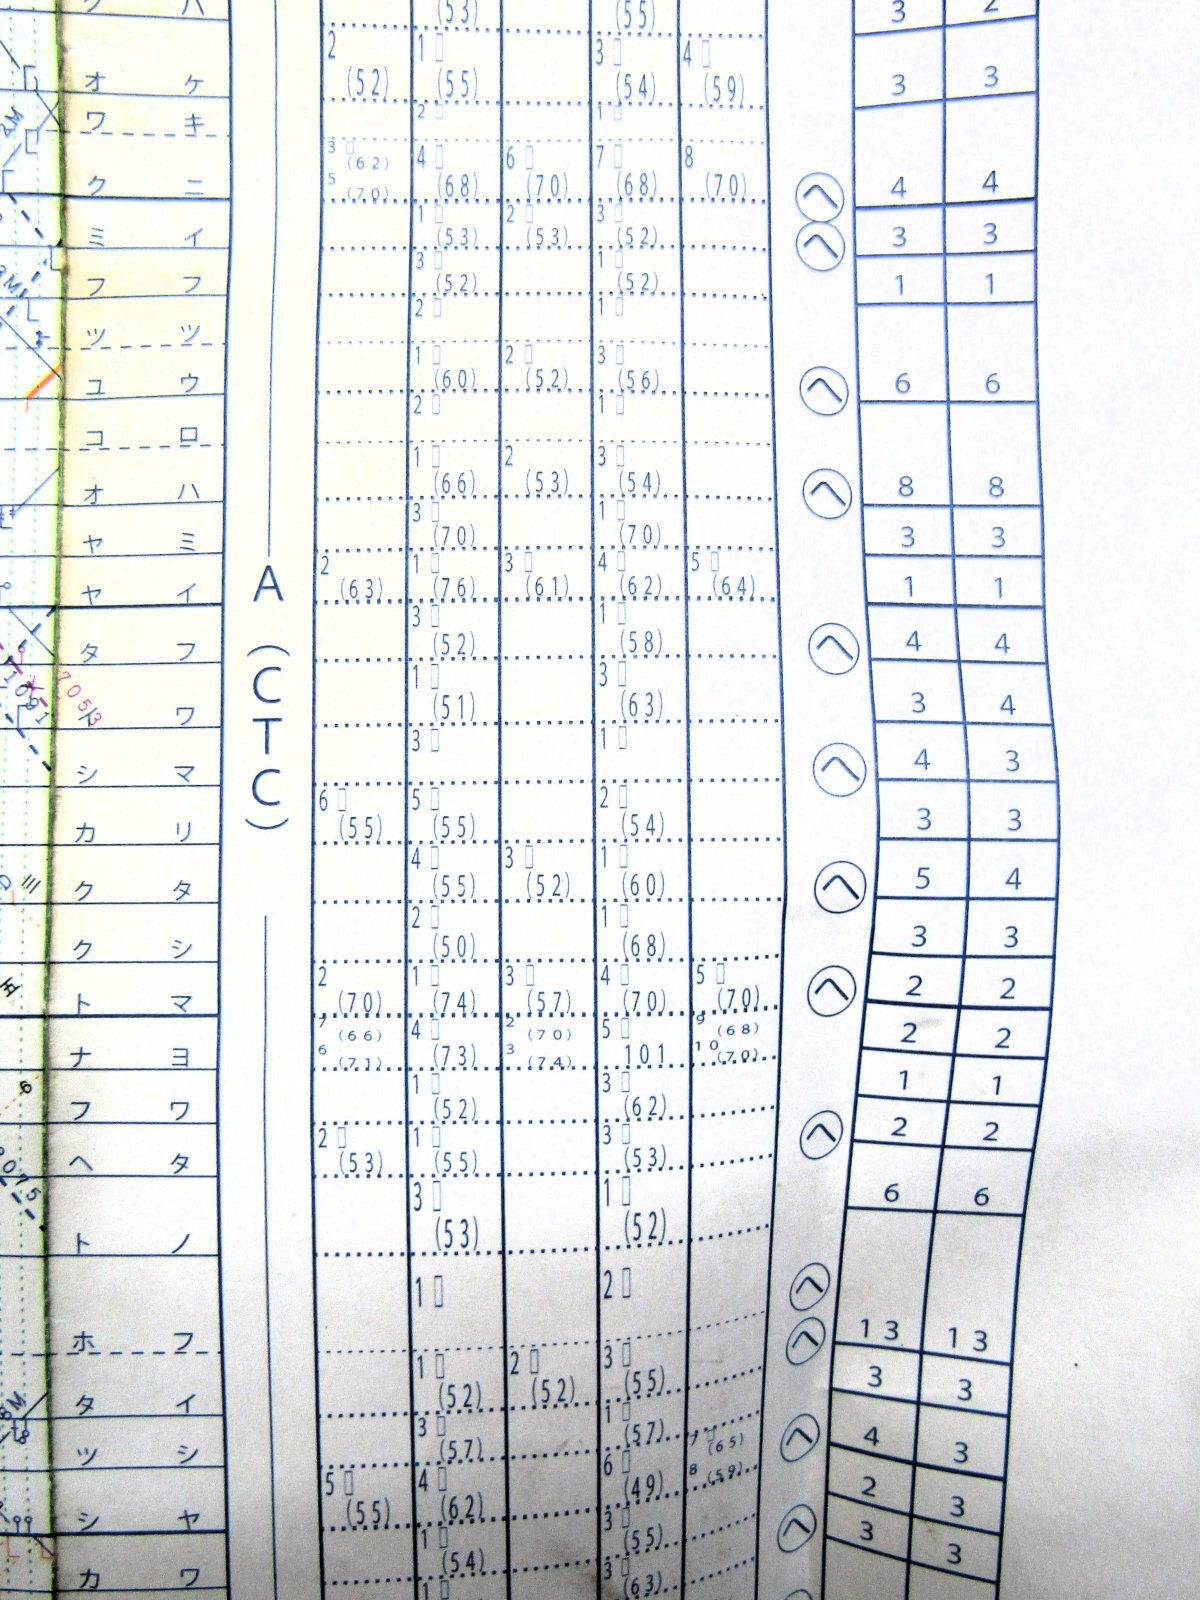 (53) (55) 3 2
オ ケ 2 (52) 1 (55) 3 (54) 4 (59) 3 3
ワ キ 2 1
3 (62)
ク ニ 5 (70) 4 (68) 6 (70) 7 (68) 8 (70) ヘ 4 4
ミ イ 1 (53) 2 (53) 3 (52) ヘ 3 3
フ フ 3 (52) 1 (52) 1 1
ツ ツ 2 1
ユ ウ 1 (60) 2 (52) 3 (56) ヘ 6 6
コ ロ 2 1
オ ハ 1 (66) 2 (53) 3 (54) ヘ 8 8
ヤ ミ 3 (70) 1 (70) 3 3
ヤ イ 2 (63) 1 (76) 3 (61) 4 (62) 5 (64) 1 1
A(CTC)
タ フ 3 (52) 1 (58) ヘ 4 4
7053
1091
ワ 1 (51) 3 (63) 3 4
シ マ 3 1 ヘ 4 3
カ リ 6 (55) 5 (55) 2 (54) 3 3
ク タ 4 (55) 3 (52) 1 (60) ヘ 5 4
ク シ 2 (50) 1 (68) 3 3
ト マ 2 (70) 1 (74) 3 (57) 4 (70) 5 (70) ヘ 2 2
7 (66) 2 (70) 9 (68)
ナ ヨ 6 (71) 4 (73) 3 (74) 5 101 10 (70) 2 2
フ ワ 1 (52) 3 (62) 1 1
ヘ タ 2 (53) 1 (55) 3 (53) ヘ 2 2
ト ノ 3 (53) 1 (52) 6 6
ホ フ 1 2 ヘ 13 13
タ イ 1 (52) 2 (52) 3 (55) ヘ 3 3
7 (65)
ツ シ 3 (57) 1 (57) ヘ 4 3
シ ヤ 5 (55) 4 (62) 6 (49) 8 (59) 2 3
カ ワ 1 (54) 3 (55) ヘ 3 3
1 3 (63)